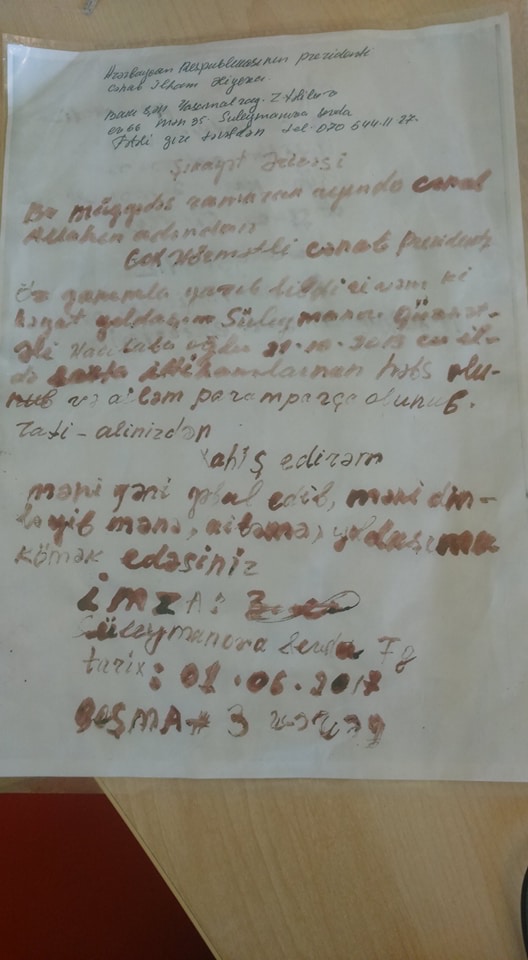 Azərbaycan Respublikasının prezidenti
cənab İlham Əliyevə.
Bakı şəh. Yasamal ray. Z. Xəlilov
ev 66 mən 35. Süleymanova Sevda
Fətdi qızı tərəfdən tel. 070 644 11 27.
Şikayət Ərizəsi
Bu müqqədəs ramazan ayında cənab
Allahın adından
Çox Hörmətli cənab Prezident
Öz qanımla yazıb bildirirəm ki
həyat yoldaşım Süleymanov
oğlu 21.10.2013 cü il-
də saxta ittihamlarnan həbs olu-
nub və ailəm paramparça olunub.
Zati-alinizdən
Xahiş edirəm
məni yəni qəbul edib, məni din-
ləyib mənə, ailəmə, yoldaşıma
kömək edəsiniz
imzA:
Süleymanova Sevda Fq
tarix: 01.06.2017
QOŞMA # 3 vərəq